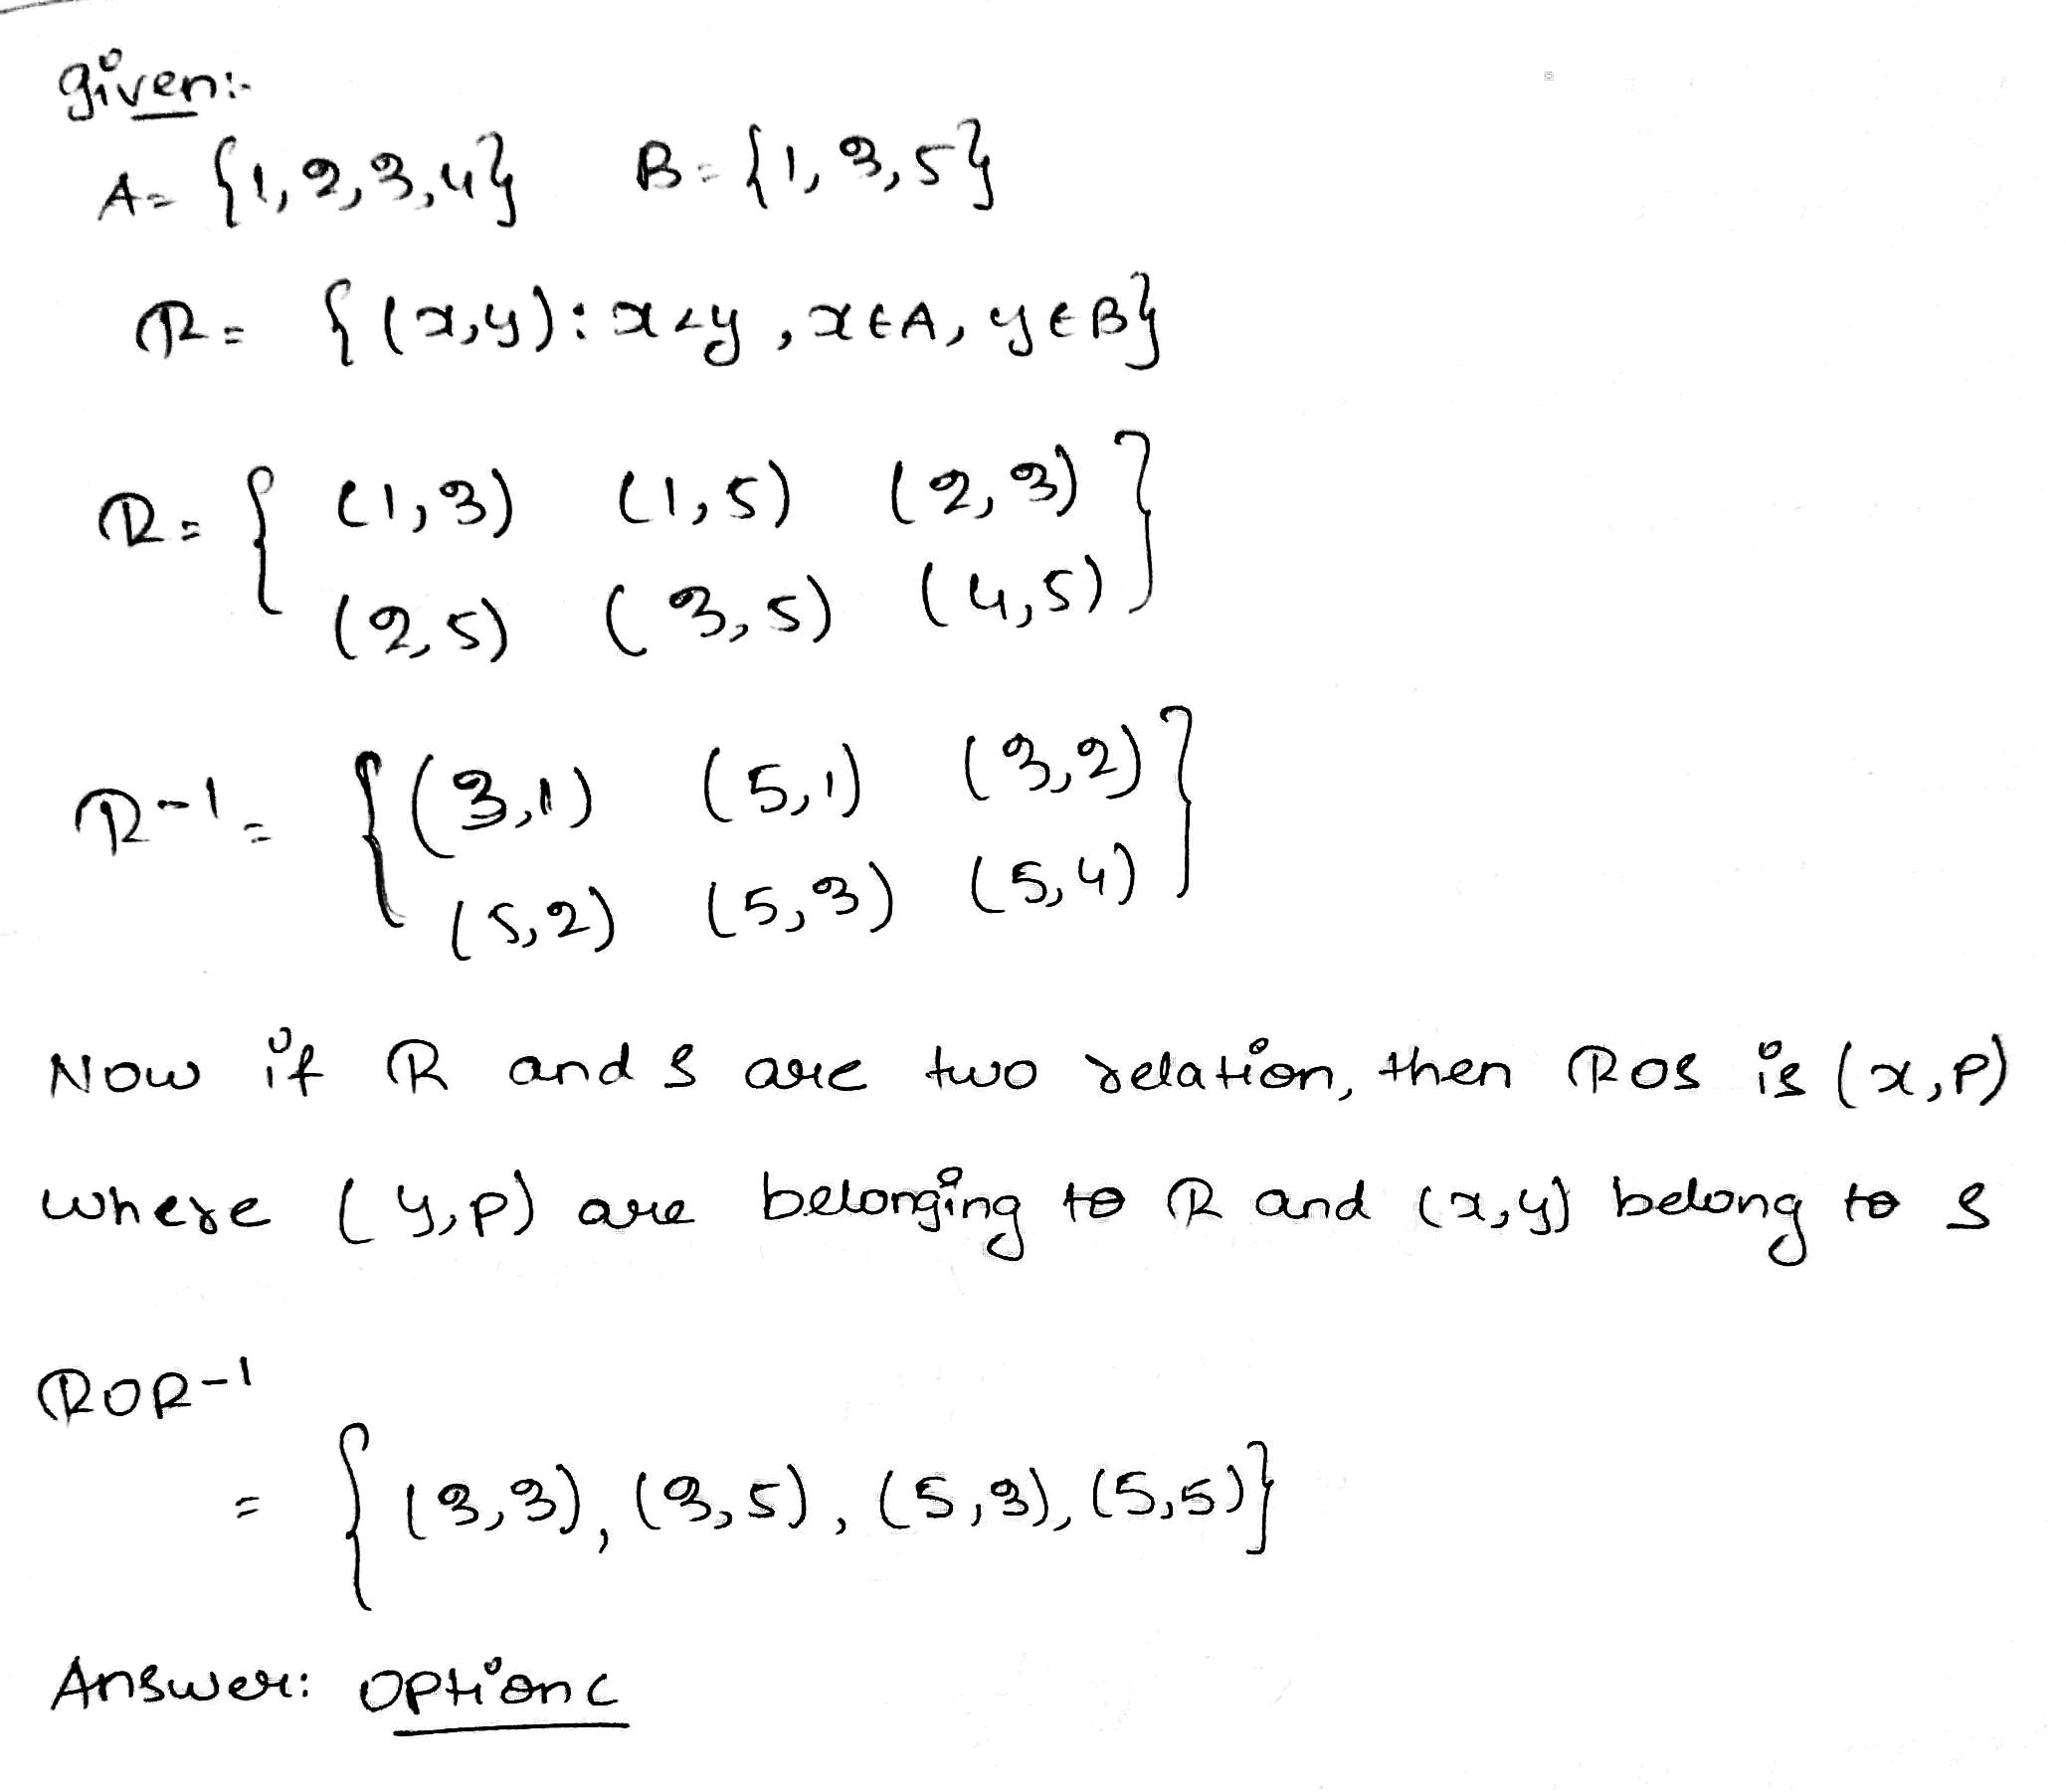 given:-
A= {1,2,3,4} B= {1,3,5}
R= {(x,y): x<y, x∈A, y∈B}
R= { (1,3) (1,5) (2,3)
(2,5) (3,5) (4,5) }
R-1 = { (3,1) (5,1) (3,2)
(5,2) (5,3) (5,4) }
Now if R and S are two relation, then ROS is (x,p)
where (y,p) are belonging to R and (x,y) belong to S
ROR-1
= { (3,3), (3,5), (5,3), (5,5)}
Answer: option c